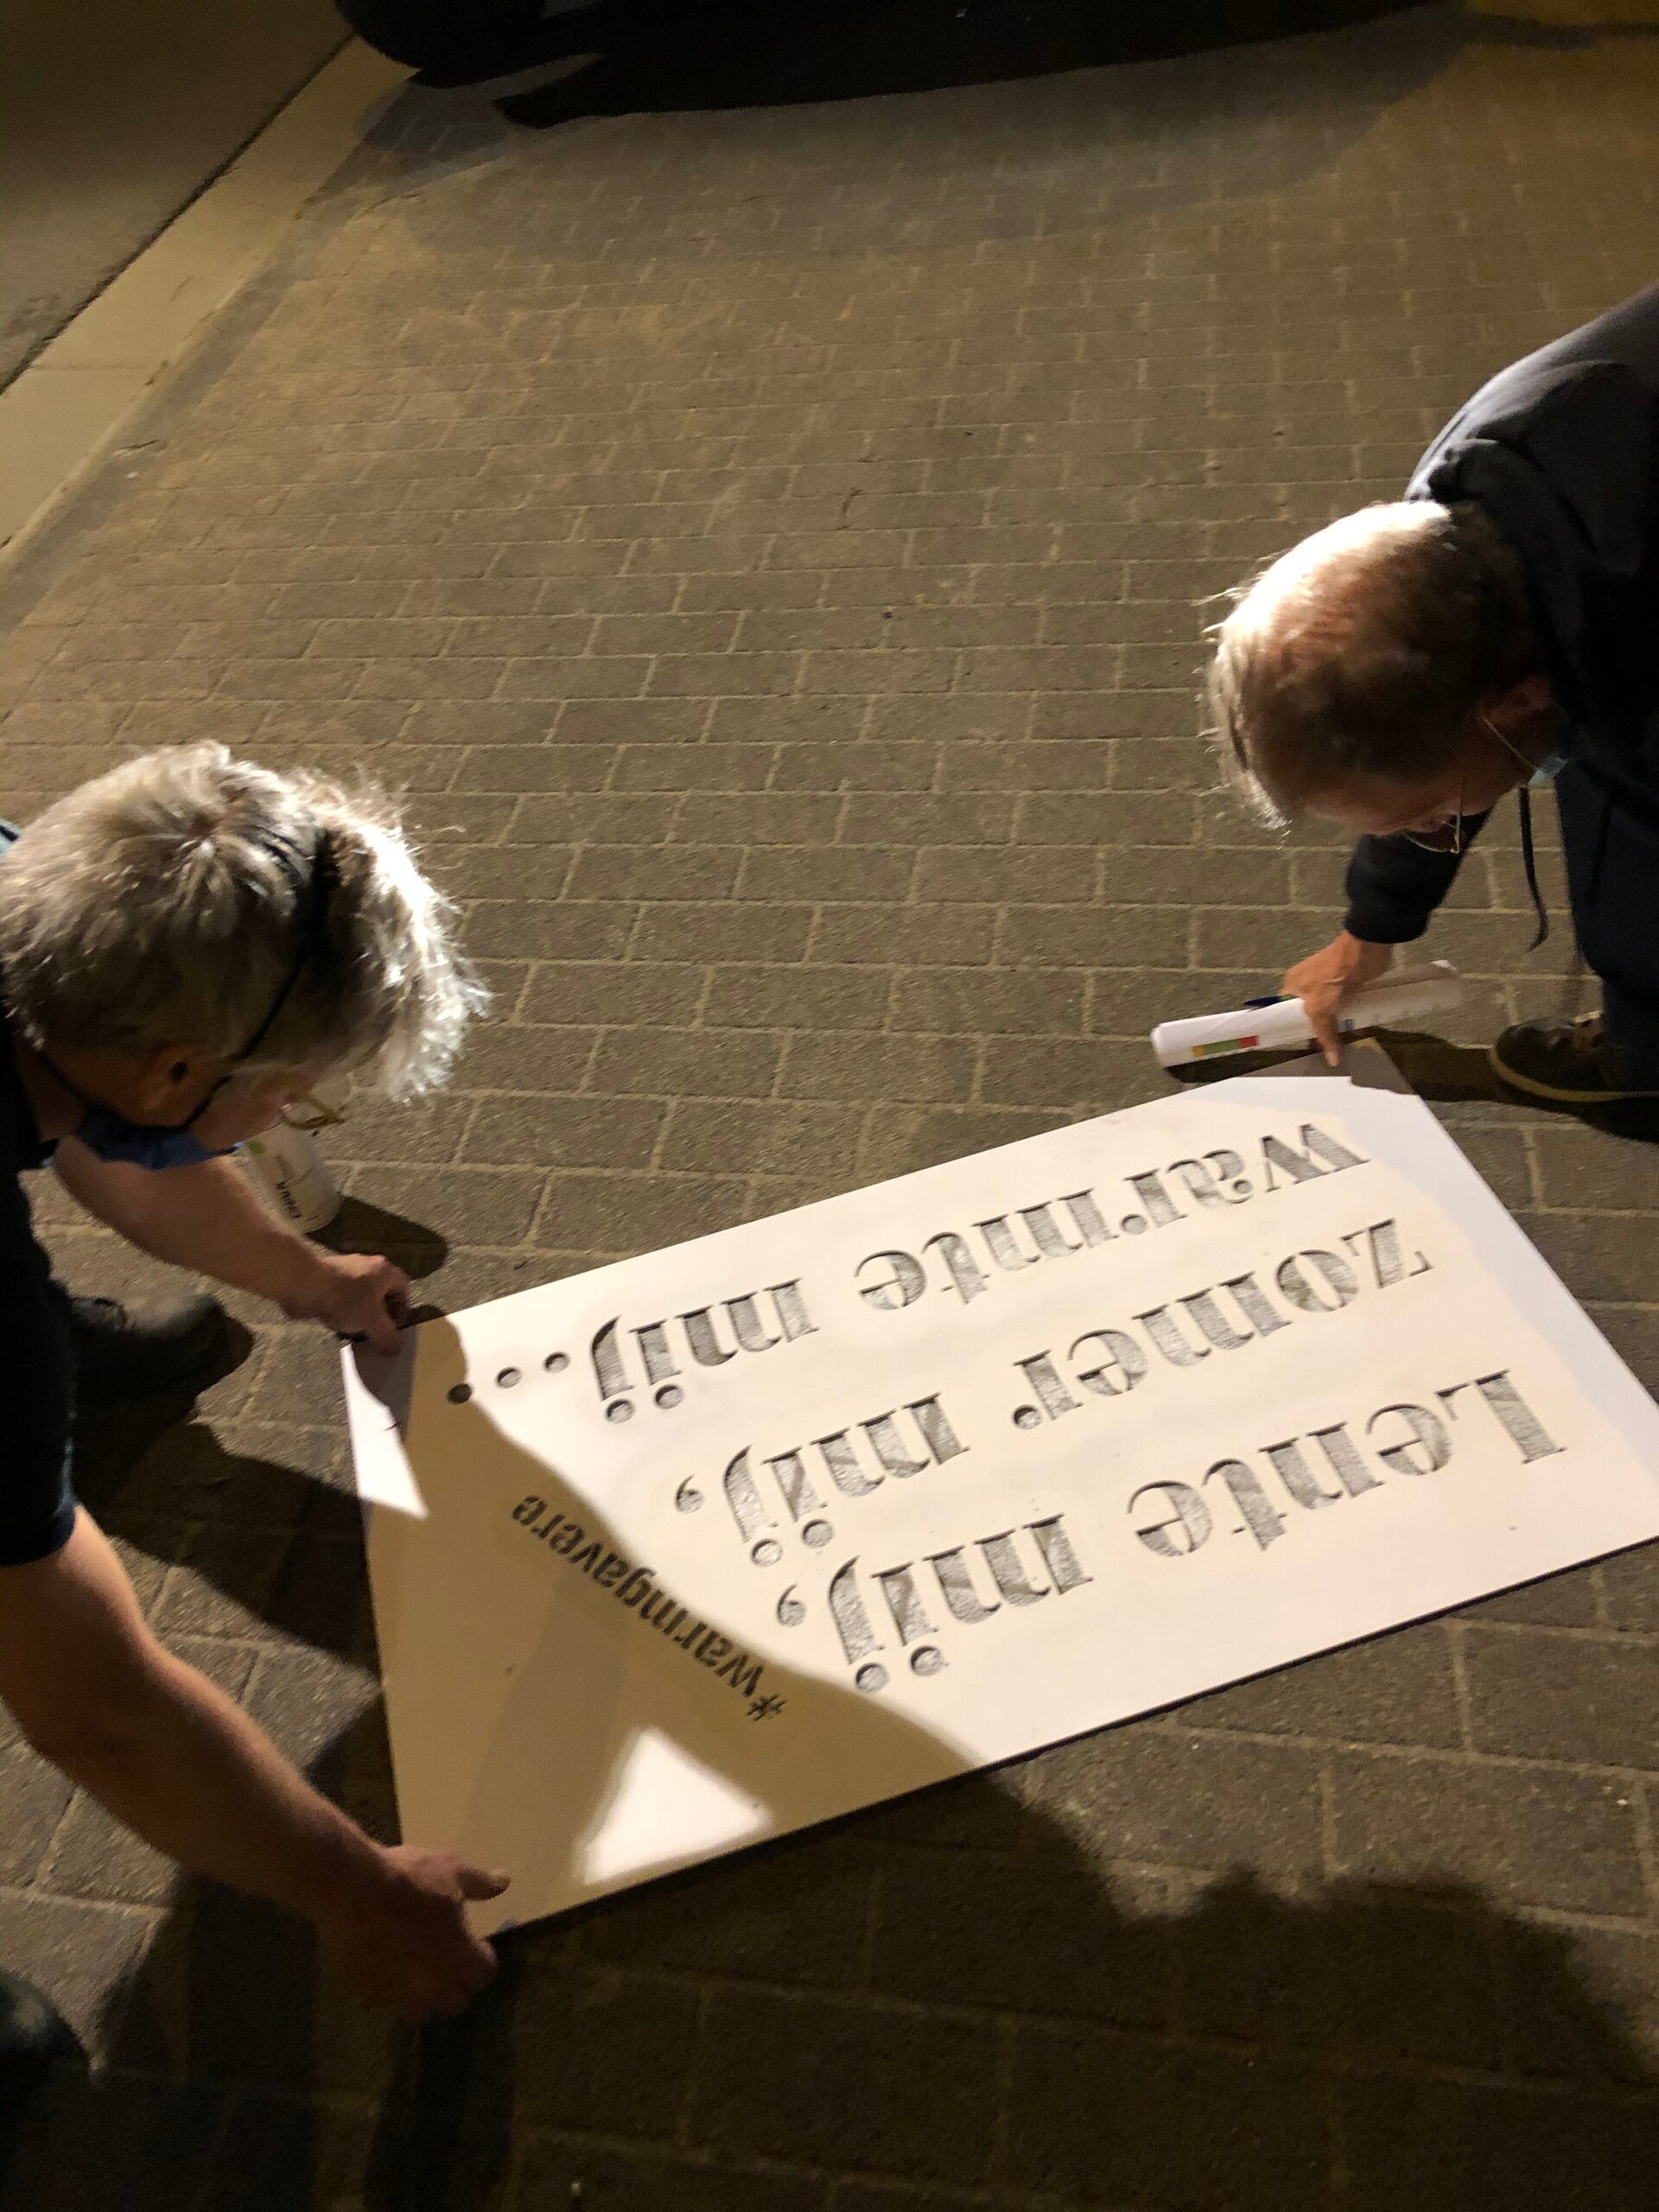 Lente mij,
zomer mij,
warmte mij...
#warmgavere